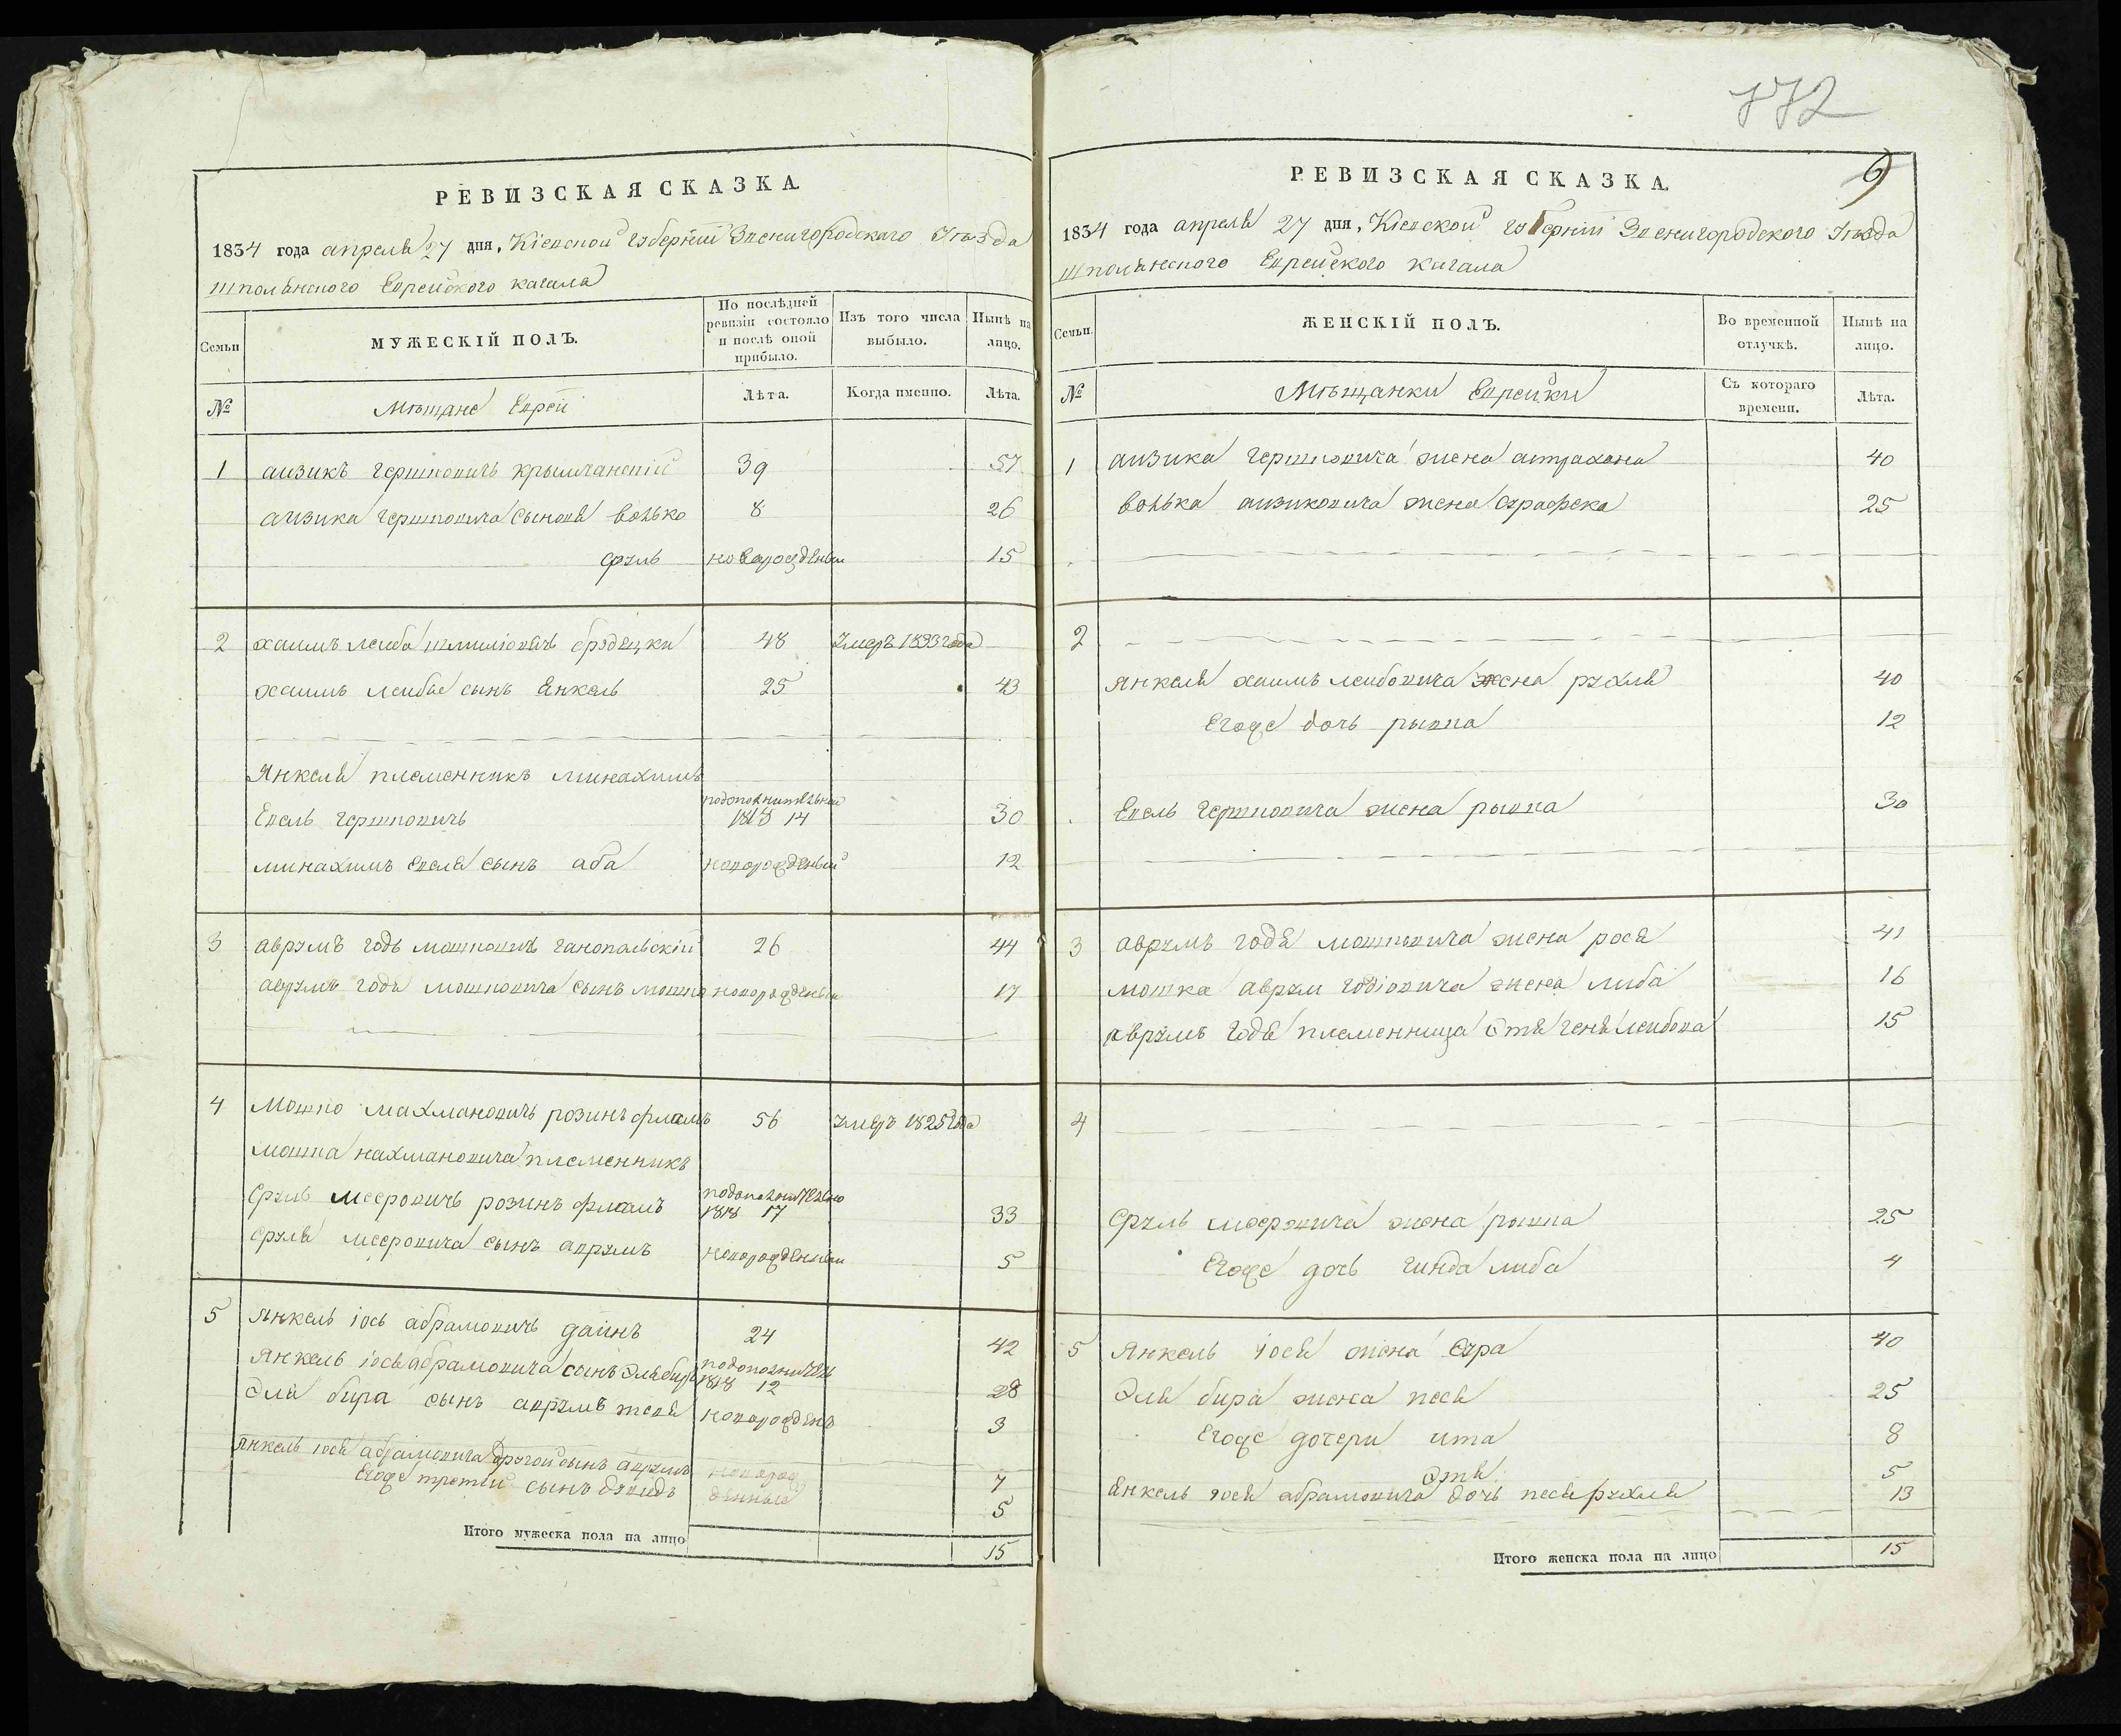 РЕВИЗСКАЯ СКАЗКА
1834 года апреля 27 дня, Кіевской губерніи Звенигородскаго Уѣзда
шполянского Еврейского кагала
Семьи
МУЖЕСКІЙ ПОЛЪ.
По послѣдней ревизіи состояло и послѣ оной прибыло.
Изъ того числа выбыло.
Нынѣ на лицо.
№
Мѣщане Евреи
Лѣта.
Когда именно.
Лѣта.
1 аизикъ гершковичъ крымчанскій 39 57
аизика гершковича сыновя волько 8 26
срулъ новарожденыи 15
2 хаимъ леиба шлиміовичъ 48 умеръ 1833 года
хаимъ леибы сынъ Енкель 25 43
Янкеля племенникъ минахимъ
Евель гершковичъ подополнительнои 1818 14 30
минахимъ евеля сынъ аба новорожденыи 12
3 аврумъ годъ мошковичъ ганопольскій 26 44
аврумъ годя мошковича сынъ мошка новорожденыи 17
4 Мошко нахмановичъ розинъ 56 умеръ 1825 года
мошка нахмановича племенникъ
Сруль меєровичъ розинъ подополнително 1818 17 33
сруля меєровича сынъ аврумъ новорожденыи 5
5 Янкель іось абрамовичъ даинъ 24 42
Янкель іося абрамовича сынъ Эля бира подополнителн 1818 12 28
Эля бира сынъ аврумъ новорожденъ 3
Янкель іося абрамовича другой сынъ аврумъ новорож 7
Егоже третій сынъ давидъ денныи 5
Итого мужеска пола на лицо 15
172
6
РЕВИЗСКАЯ СКАЗКА.
1834 года апреля 27 дня, Кіевской губерніи Звенигородского Уѣзда
шполянского Еврейского кагала
Семьи.
ЖЕНСКІЙ ПОЛЪ.
Во временной отлучкѣ.
Нынѣ на лицо.
№
Мѣщанки Еврейки
Съ котораго времени.
Лѣта.
1 аизика гершковича жена 40
волька аизиковича жена 25
2
янкеля хаимъ леибовича жена рухля 40
Егоже дочь рывка 12
Евель гершковича жена рывка 30
3 аврумъ годя мошковича жена рося 41
мошка аврум годіовича жена либа 16
аврумъ годя племенница Этя геня леибова 15
4
Сруль меєровича жена рывка 25
Егоже дочь гинда либа 4
5 Янкель іося жена сура 40
Эля бира жена песя 25
Егоже дочери ита 8
Этя 5
Янкель іося абрамовича дочь песя рухля 13
Итого женска пола на лицо 15